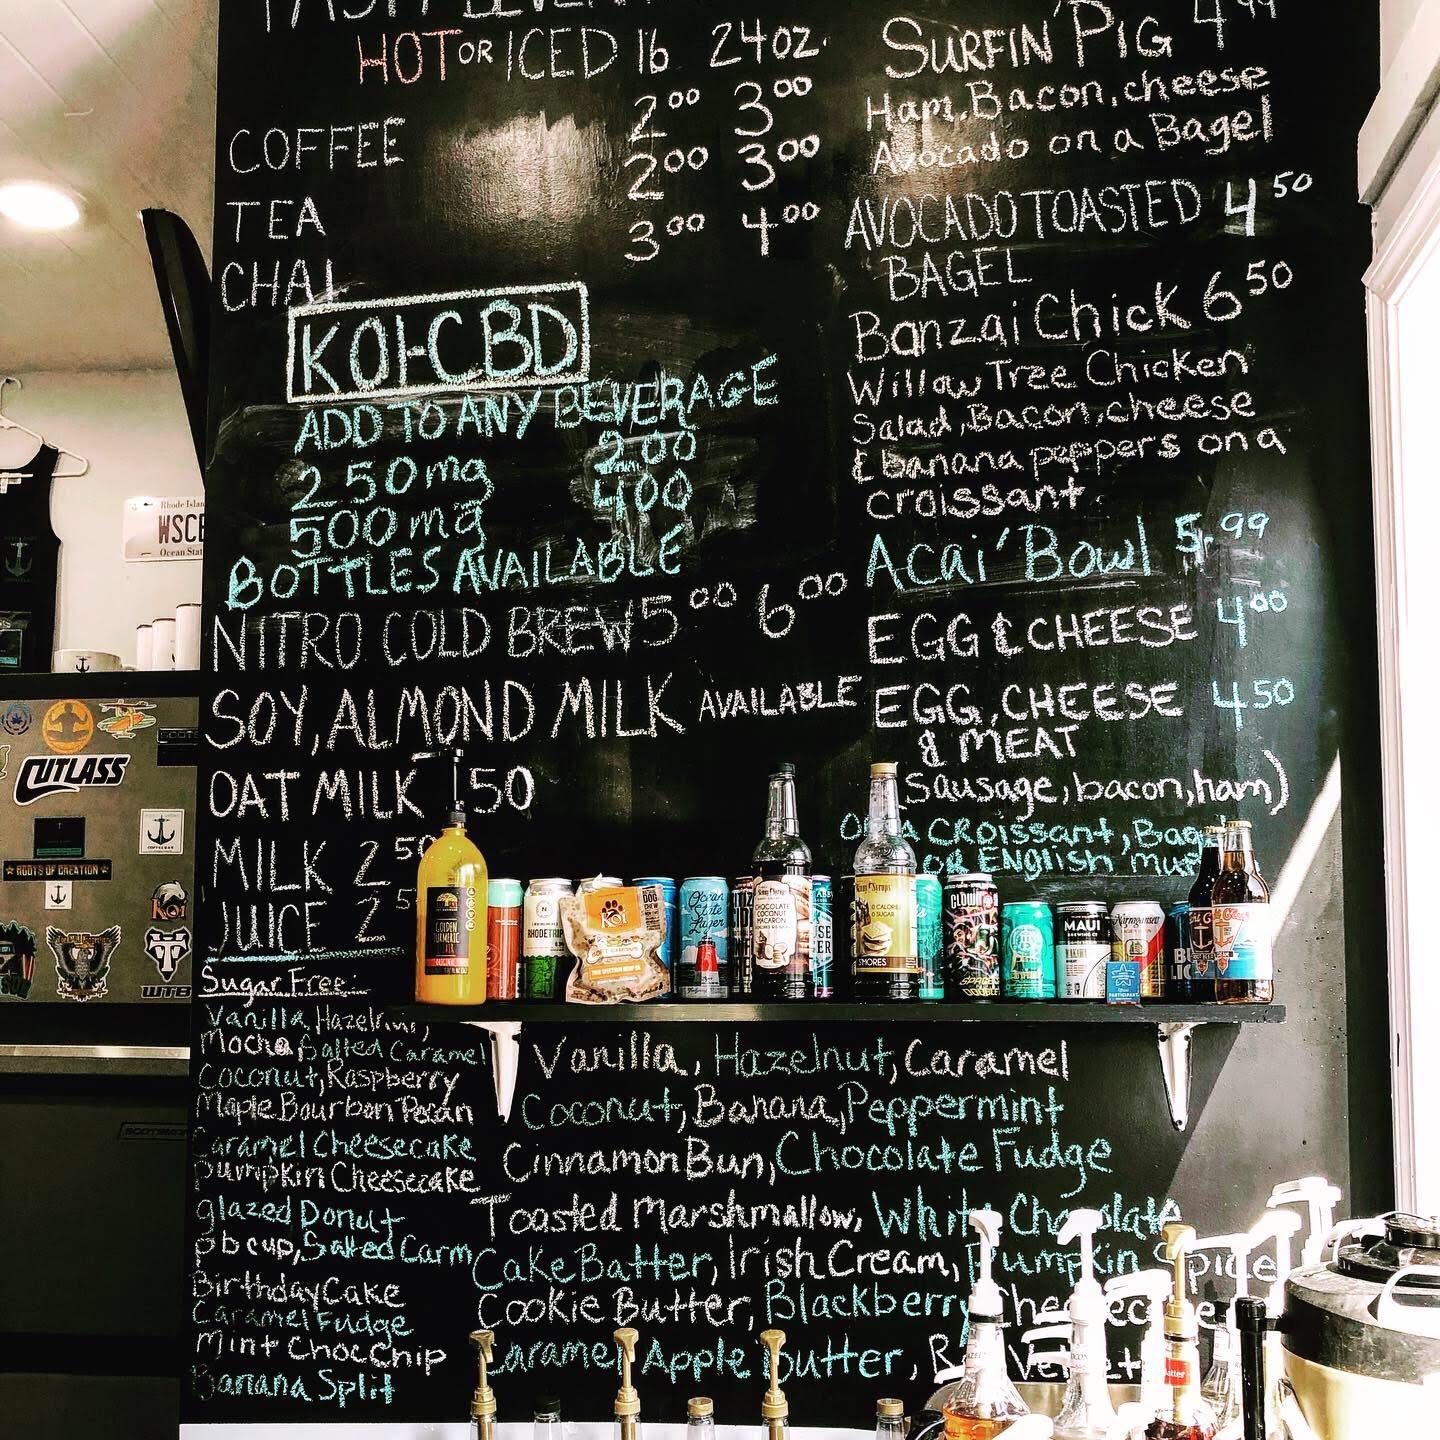 HOT OR ICED 16 24OZ.
COFFEE 2.00 3.00
TEA 2.00 3.00
CHAI 3.00 4.00
KOI-CBD
ADD TO ANY BEVERAGE
250mg 2.00
500mg 4.00
BOTTLES AVAILABLE
NITRO COLD BREW 5.00 6.00
SOY, ALMOND MILK AVAILABLE
OAT MILK 50
MILK 2.50
JUICE
SURFIN' PIG 4.99
Ham, Bacon, cheese
Avocado on a Bagel
AVOCADO TOASTED 4.50
BAGEL
Banzai Chick 6.50
Willow Tree Chicken
Salad, Bacon, cheese
& banana peppers on a
croissant.
Acai' Bowl 5.99
EGG & CHEESE 4.00
EGG, CHEESE 4.50
& MEAT
(sausage, bacon, ham)
CROissant,
OR ENGlish
Sugar Free:
Vanilla, Hazelnut,
Mocha, Salted Caramel
Coconut, Raspberry
Maple Bourbon Pecan
Caramel Cheesecake
pumpkin Cheesecake
glazed Donut
pb cup, Salted Carm
Birthday Cake
Caramel Fudge
Mint Choc Chip
Banana Split
Vanilla, Hazelnut, Caramel
Coconut, Banana, Peppermint
Cinnamon Bun, Chocolate Fudge
Toasted Marshmallow, White Chocolate
Cake Batter, Irish Cream, Pumpkin Spice
Cookie Butter, Blackberry, Cheesecake
Caramel Apple Butter, Red Velvet
Rhode Island
WSCB
Ocean State
CUTLASS
ROOTS OF CREATION
KOI
WTB
GOLDEN
TURMERIC
RHODETRIP
KOI
Ocean
State
Lager
CHOCOLATE
COCONUT
MACARON
0 CALORIES
0 SUGAR
S'MORES
CLOWN
SPACE
DOUBLE
MAUI
BREWING CO
Narragansett
PARTICIPANT